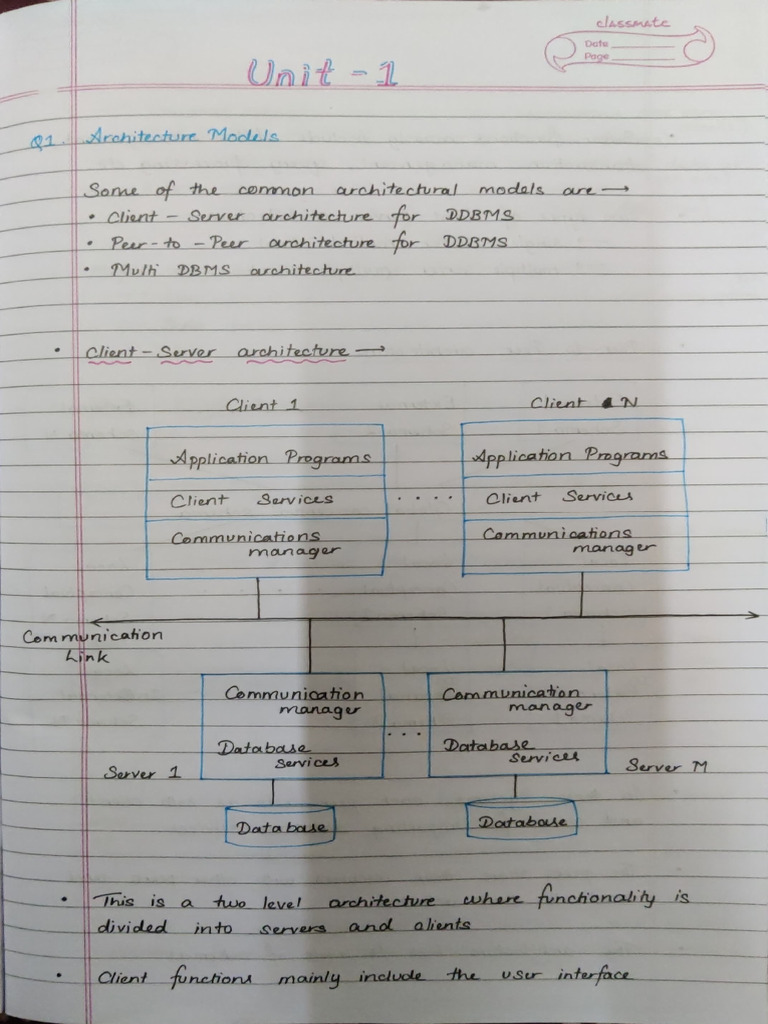 classmate
Date
Page
Unit - 1
Q1. Architecture Models
Some of the common architectural models are →
• Client - Server architecture for DDBMS
• Peer - to - Peer architecture for DDBMS
• Multi DBMS architecture
• Client - Server architecture →
Client 1
Client N
Application Programs
Client Services
Communications
manager
. . . .
Application Programs
Client Services
Communications
manager
Communication
Link
Communication
manager
Database
Services
Server 1
. . .
Communication
manager
Database
Services
Server M
Database
Database
• This is a two level architecture where functionality is
divided into servers and clients
• Client functions mainly include the user interface